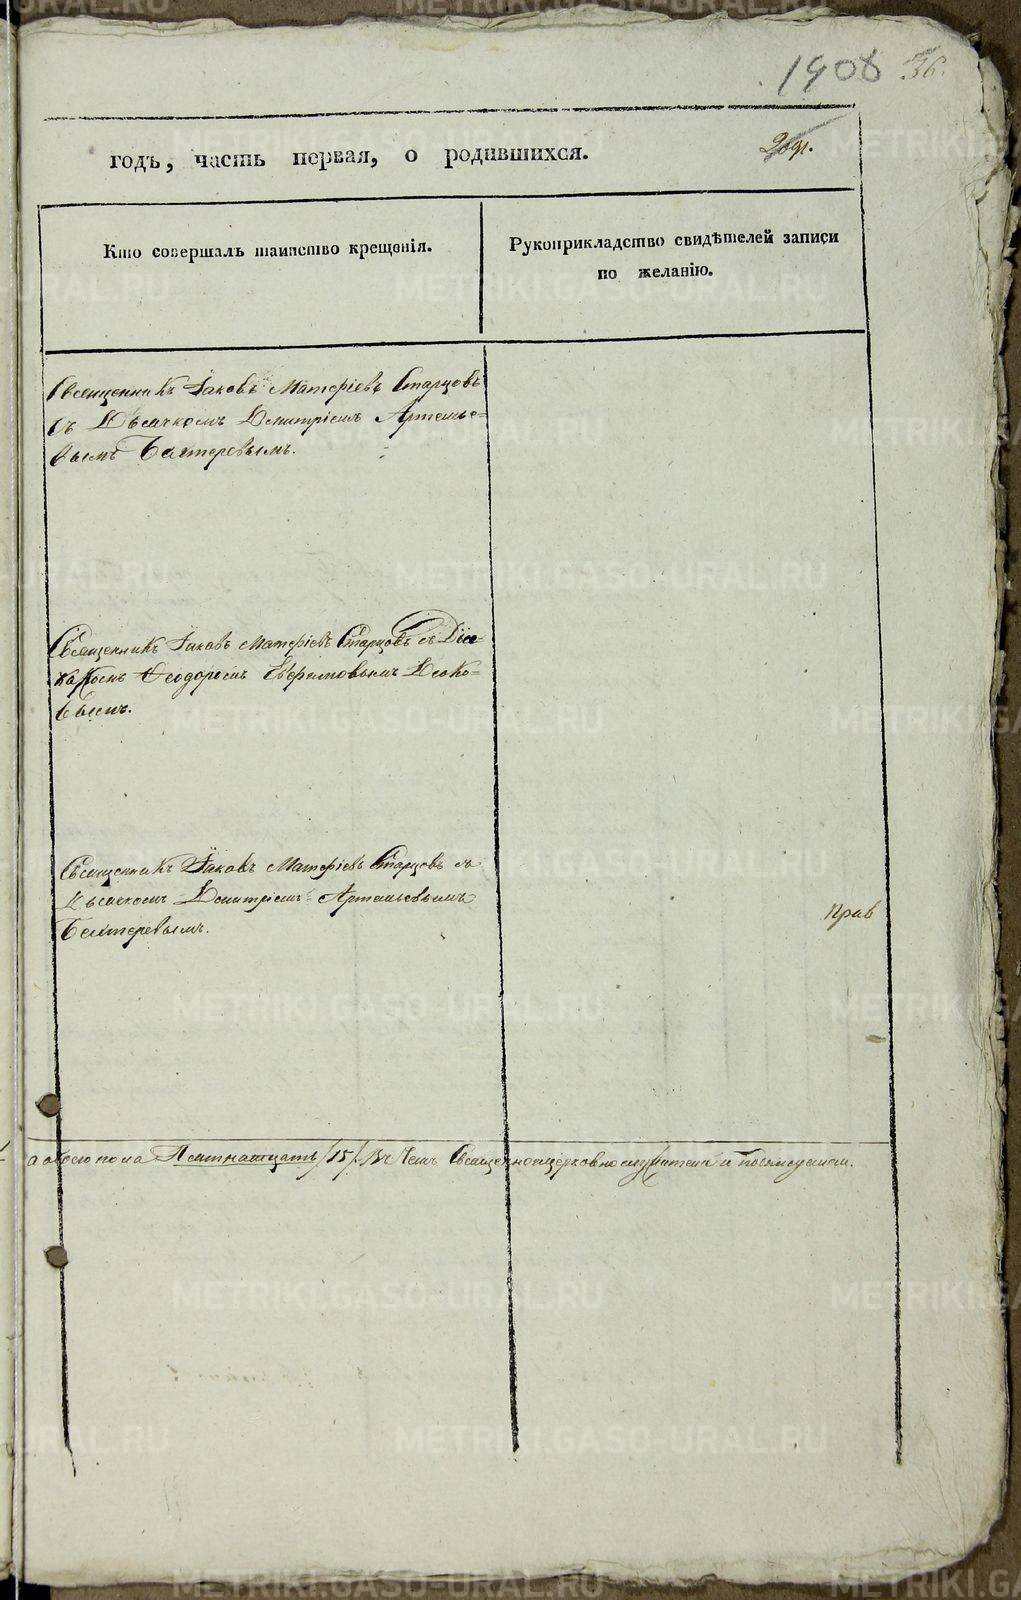 1908 36.
годъ, часть первая, о родившихся.
Кто совершалъ таинство крещенія.
Рукоприкладство свидѣтелей записи
по желанію.
Священникъ Іаковъ Матѳіевъ Старцовъ
съ Дьячкомъ Димитріемъ Артемье-
вымъ Бахтеревымъ.
Священникъ Іаковъ Матѳіевъ Старцовъ съ Діа-
Ѳеодоромъ
вымъ.
Священникъ Іаковъ Матѳіевъ Старцовъ съ
Дьячкомъ Димитріемъ Артемьевымъ
Бахтеревымъ.
Прав
а обоего пола Пятнатцать /15/. Въ чемъ Священноцерковнослужители и
METRIKI.GASO-URAL.RU